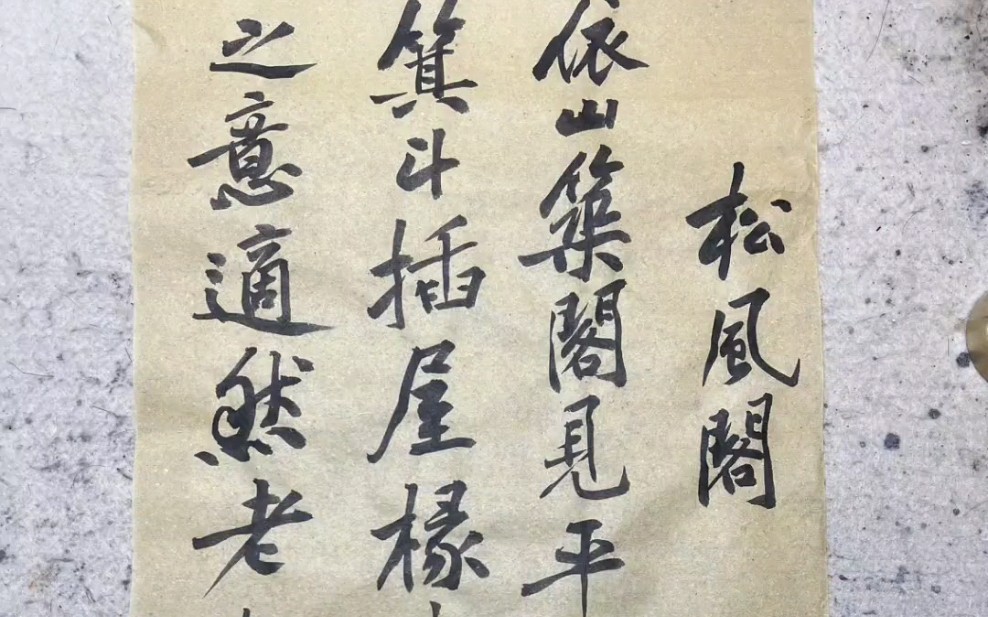 松風閣
依山築閣見平
箕斗插屋椽
之意適然老